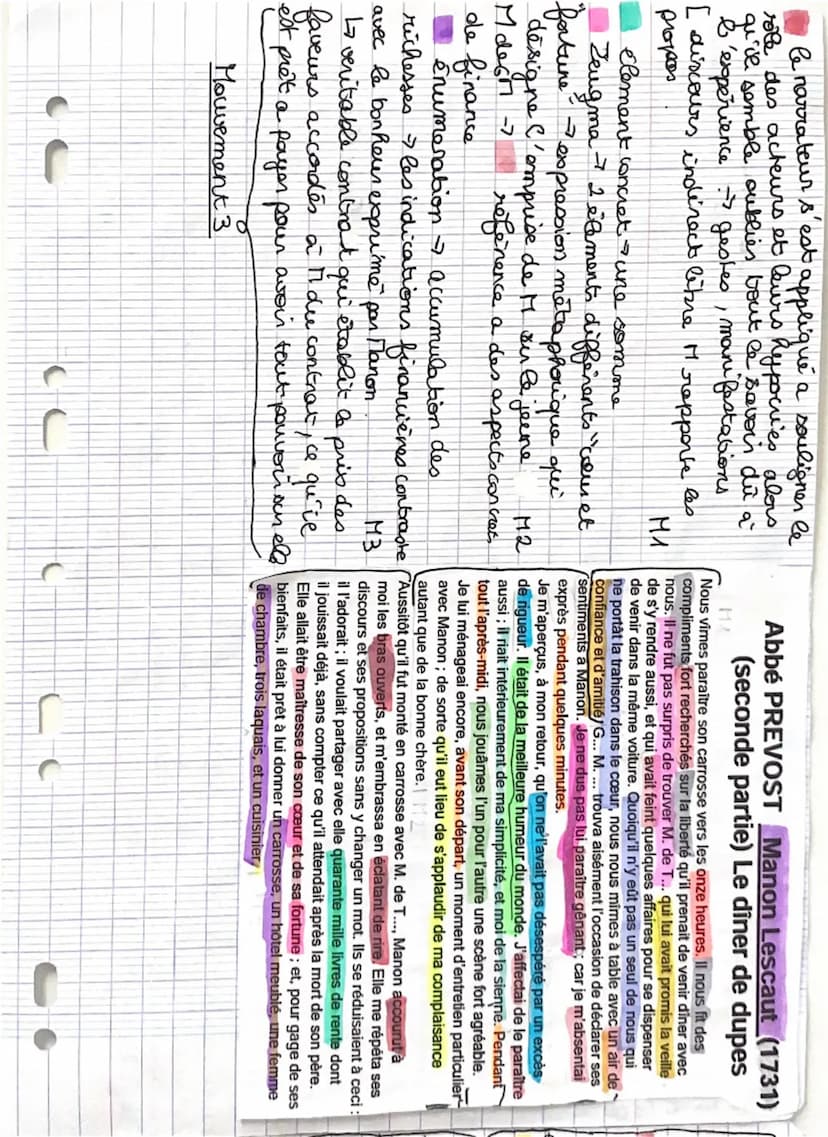 le narrateur s'est appliqué a souligner le
rôle des acteurs et leurs hypocrisies alors
qu'il semble oublier tout le savoir dû à
l'expérience → gestes, manifestations
[ discours indirect libre M rapporte les
propos.
M1
élément concret → une somme
Zeugma → 2 éléments différents "cœur et
fortune" → expression métaphorique qui
désigne l'emprise de M sur le jeune
M2
M de M → référence a des aspects concrets
de finance
énumération → accumulation des
richesses → les indications financières contraste
avec le bonheur exprimé par Manon.
M3
↳ veritable contrat qui établit le prix des
faveurs accordés à M du contrat, ce qu'il
est prêt a payer pour avoir tout pouvoir sur elle
Mouvement 3
Abbé PREVOST Manon Lescaut (1731)
(seconde partie) Le dîner de dupes
Nous vîmes paraître son carrosse vers les onze heures. Il nous fit des
compliments fort recherchés sur la liberté qu'il prenait de venir dîner avec
nous. Il ne fut pas surpris de trouver M. de T... qui lui avait promis la veille
de s'y rendre aussi, et qui avait feint quelques affaires pour se dispenser
de venir dans la même voiture. Quoiqu'il n'y eût pas un seul de nous qui
ne portât la trahison dans le cœur, nous nous mîmes à table avec un air de
confiance et d'amitié. G... M... trouva aisément l'occasion de déclarer ses
sentiments à Manon. Je ne dus pas lui paraître gênant ; car je m'absentai
exprès pendant quelques minutes.
Je m'aperçus, à mon retour, qu'on ne l'avait pas désespéré par un excès
de rigueur. Il était de la meilleure humeur du monde. J'affectai de le paraître
aussi ; il riait intérieurement de ma simplicité, et moi de la sienne. Pendant
tout l'après-midi, nous jouâmes l'un pour l'autre une scène fort agréable.
Je lui ménageai encore, avant son départ, un moment d'entretien particulier
avec Manon ; de sorte qu'il eut lieu de s'applaudir de ma complaisance
autant que de la bonne chère.
Aussitôt qu'il fut monté en carrosse avec M. de T..., Manon accourut à
moi les bras ouverts, et m'embrassa en éclatant de rire. Elle me répéta ses
discours et ses propositions sans y changer un mot. Ils se réduisaient à ceci :
il l'adorait ; il voulait partager avec elle quarante mille livres de rente dont
il jouissait déjà, sans compter ce qu'il attendait après la mort de son père.
Elle allait être maîtresse de son cœur et de sa fortune ; et, pour gage de ses
bienfaits, il était prêt à lui donner un carrosse, un hôtel meublé, une femme
de chambre, trois laquais, et un cuisinier.